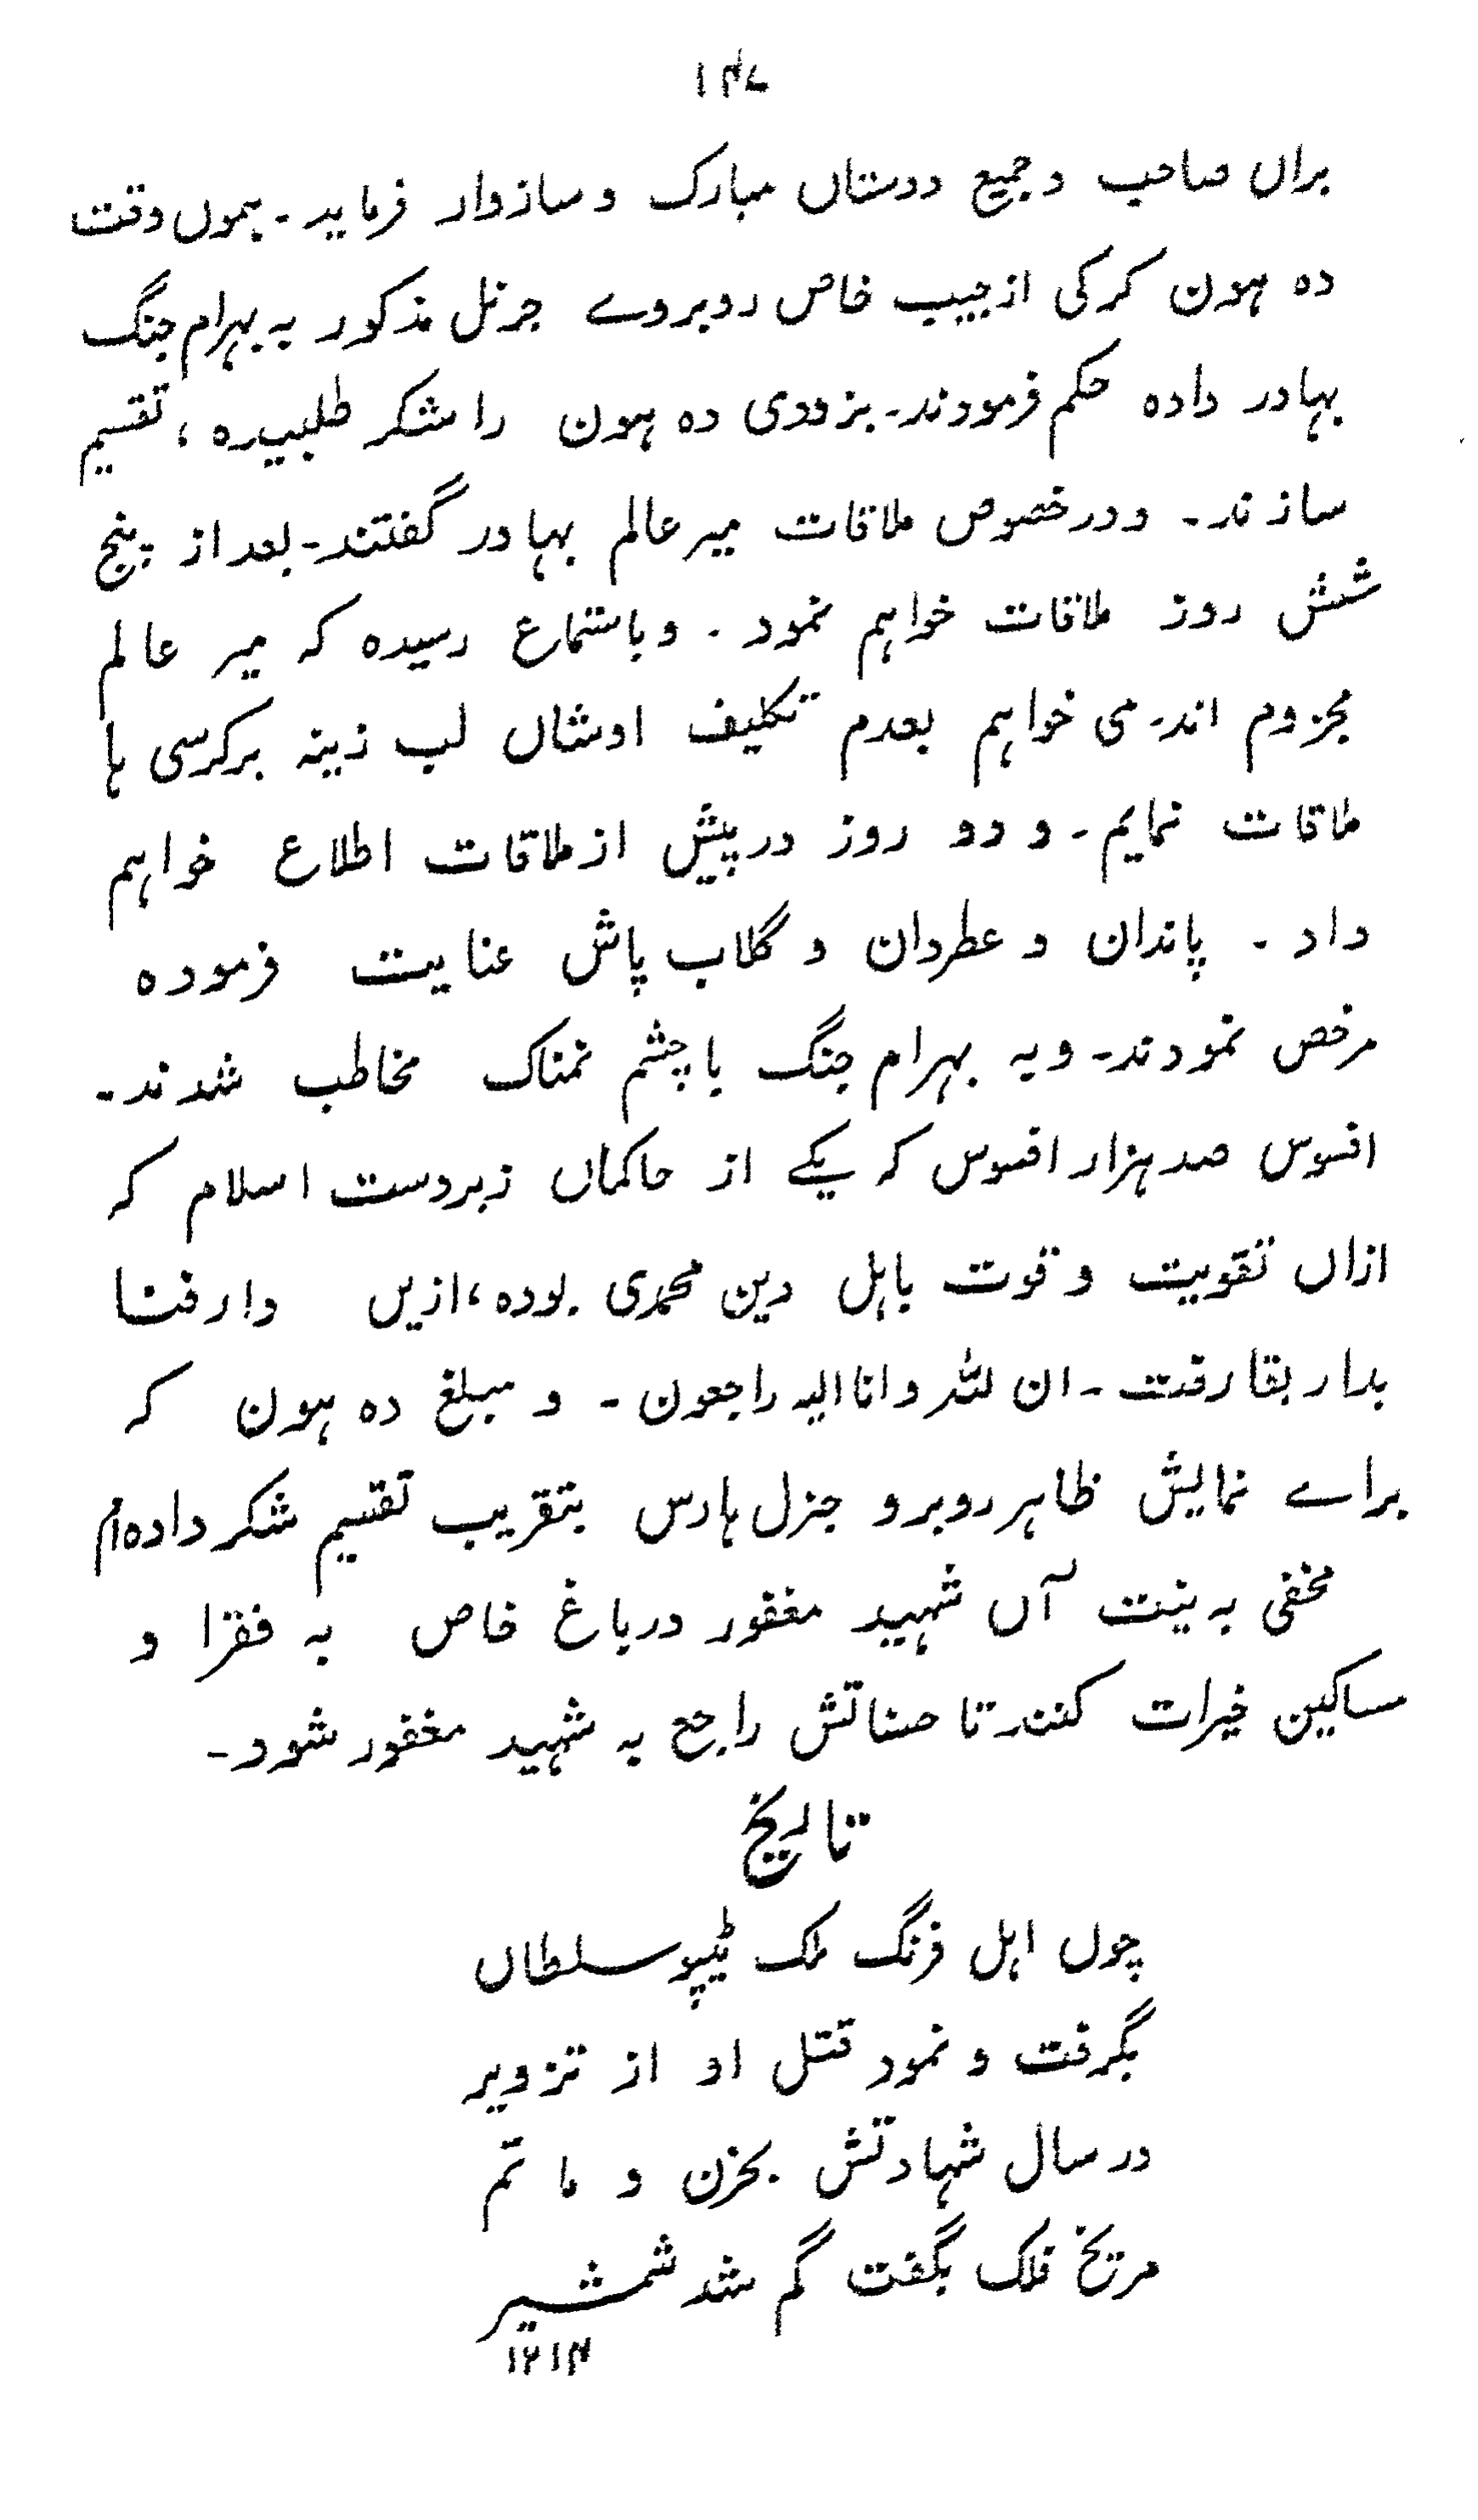 ۱۴۷
براں صاحب و جمیع دوستاں مبارک و سازوار فرماید۔ ہموں وقت
دہ ہون کرکی از جیب خاص روبروے جرنل مذکور بہ بہرام جنگ
بہادر دادہ حکم فرمودند۔ بزودی دہ ہون را شکر طلبیدہ، تقسیم
سازند۔ و در خصوص ملاقات میر عالم بہادر گفتند۔ بعد از پنج
شش روز ملاقات خواہم نمود ۔ و باستماع رسیدہ کہ میر عالم
مجزوم اند۔ می خواہم بعدم تکلیف اوشاں لب زینہ بر کرسی ہا
ملاقات نمایم۔ و دو روز در پیش از ملاقات اطلاع خواہم
داد ۔ پاندان و عطردان و گلاب پاش عنایت فرمودہ
مرخص نمودند۔ و بہ بہرام جنگ با چشم نمناک مخاطب شدند۔
افسوس صد ہزار افسوس کہ یکے از حاکماں زبردست اسلام کہ
ازاں تقویت و قوت باہل دین محمدی بودہ، ازیں دار فنا
بدار بقا رفت ۔ ان للہ و انا الیہ راجعون ۔ و مبلغ دہ ہون کہ
براے نمایش ظاہر روبرو جنرل ہارس بتقریب تقسیم شکر دادہ ام
مخفی بہ نیت آں شہید مغفور در باغ خاص بہ فقرا و
مساکین خیرات کنند تا حسناتش راجع بہ شہید مغفور شود۔
تاریخ
چوں اہل فرنگ ملک ٹیپو سلطاں
بگرفت و نمود قتل او از تزویر
در سال شہادتش بحزن و ماتم
مریخ فلک بگفت گم شد شمشیر
۱۲۱۴